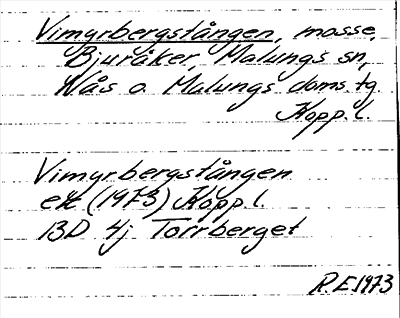 Vimyrbergstången, mosse,
Bjuråker, Malungs sn,
Nås o. Malungs doms.tg
Kopp. l.
Vimyrbergstången
ek (1973) Kopp l.
13D 4j Torrberget
R.E 1973